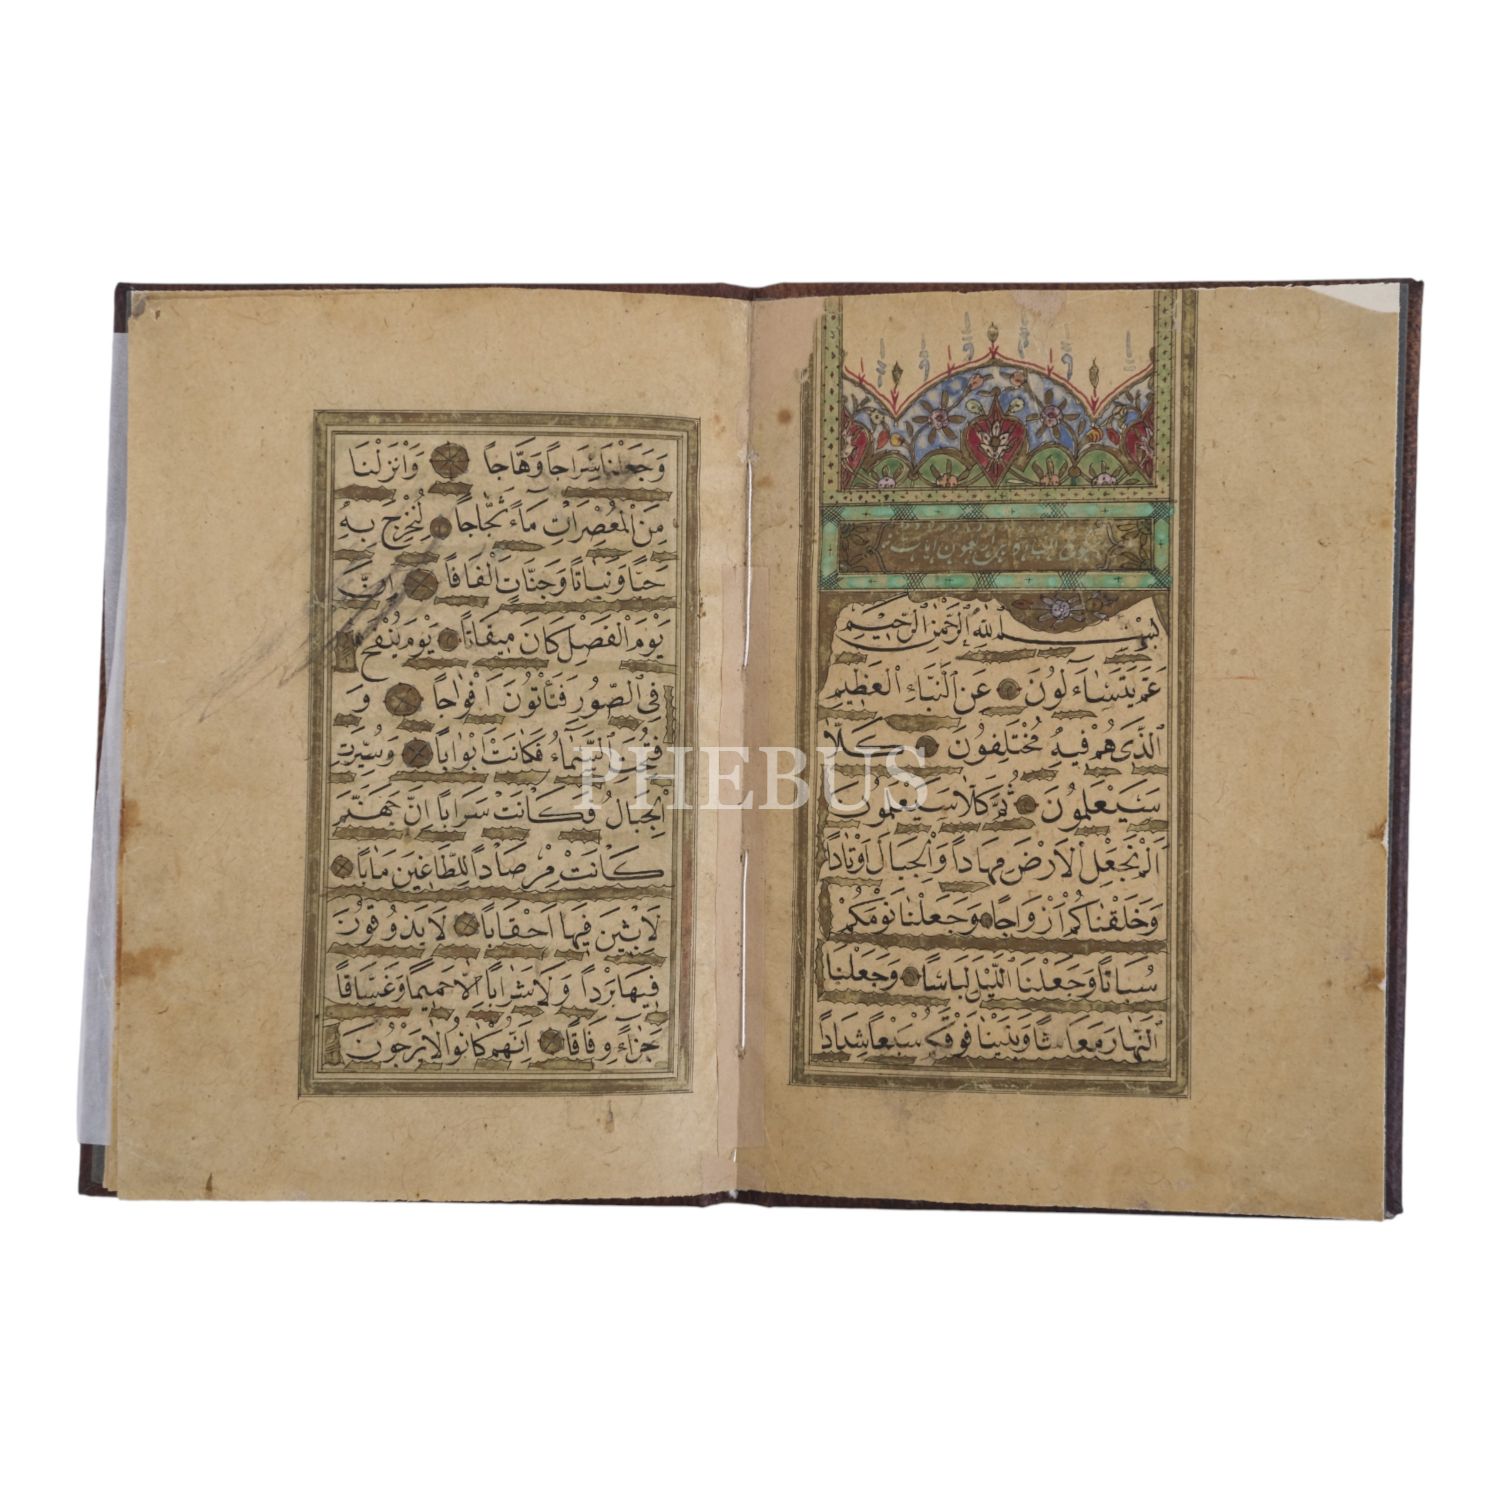 بِسْمِ اللهِ الرَّحْمٰنِ الرَّحِيمِ
عَمَّ يَتَسَاءَلُونَ عَنِ النَّبَاءِ الْعَظِيمِ
الَّذِى هُمْ فِيهِ مُخْتَلِفُونَ كَلَّا
سَيَعْلَمُونَ ثُمَّ كَلَّا سَيَعْلَمُونَ
اَلَمْ نَجْعَلِ الْاَرْضَ مِهَادًا وَالْجِبَالَ اَوْتَادًا
وَخَلَقْنَاكُمْ اَزْوَاجًا وَجَعَلْنَا نَوْمَكُمْ
سُبَاتًا وَجَعَلْنَا الَّيْلَ لِبَاسًا وَجَعَلْنَا
النَّهَارَ مَعَاشًا وَبَنَيْنَا فَوْقَكُمْ سَبْعًا شِدَادًا
وَجَعَلْنَا سِرَاجًا وَهَّاجًا وَاَنْزَلْنَا
مِنَ الْمُعْصِرَاتِ مَاءً ثَجَّاجًا لِنُخْرِجَ بِهِ
حَبًّا وَنَبَاتًا وَجَنَّاتٍ اَلْفَافًا اِنَّ
يَوْمَ الْفَصْلِ كَانَ مِيقَاتًا يَوْمَ يُنْفَخُ
فِى الصُّورِ فَتَأْتُونَ اَفْوَاجًا وَ
فُتِحَتِ السَّمَاءُ فَكَانَتْ اَبْوَابًا وَسُيِّرَتِ
الْجِبَالُ فَكَانَتْ سَرَابًا اِنَّ جَهَنَّمَ
كَانَتْ مِرْصَادًا لِلطَّاغِينَ مَاٰبًا
لَابِثِينَ فِيهَا اَحْقَابًا لَا يَذُوقُونَ
فِيهَا بَرْدًا وَلَا شَرَابًا اِلَّا حَمِيمًا وَغَسَّاقًا
جَزَاءً وِفَاقًا اِنَّهُمْ كَانُوا لَا يَرْجُونَ
PHEBUS